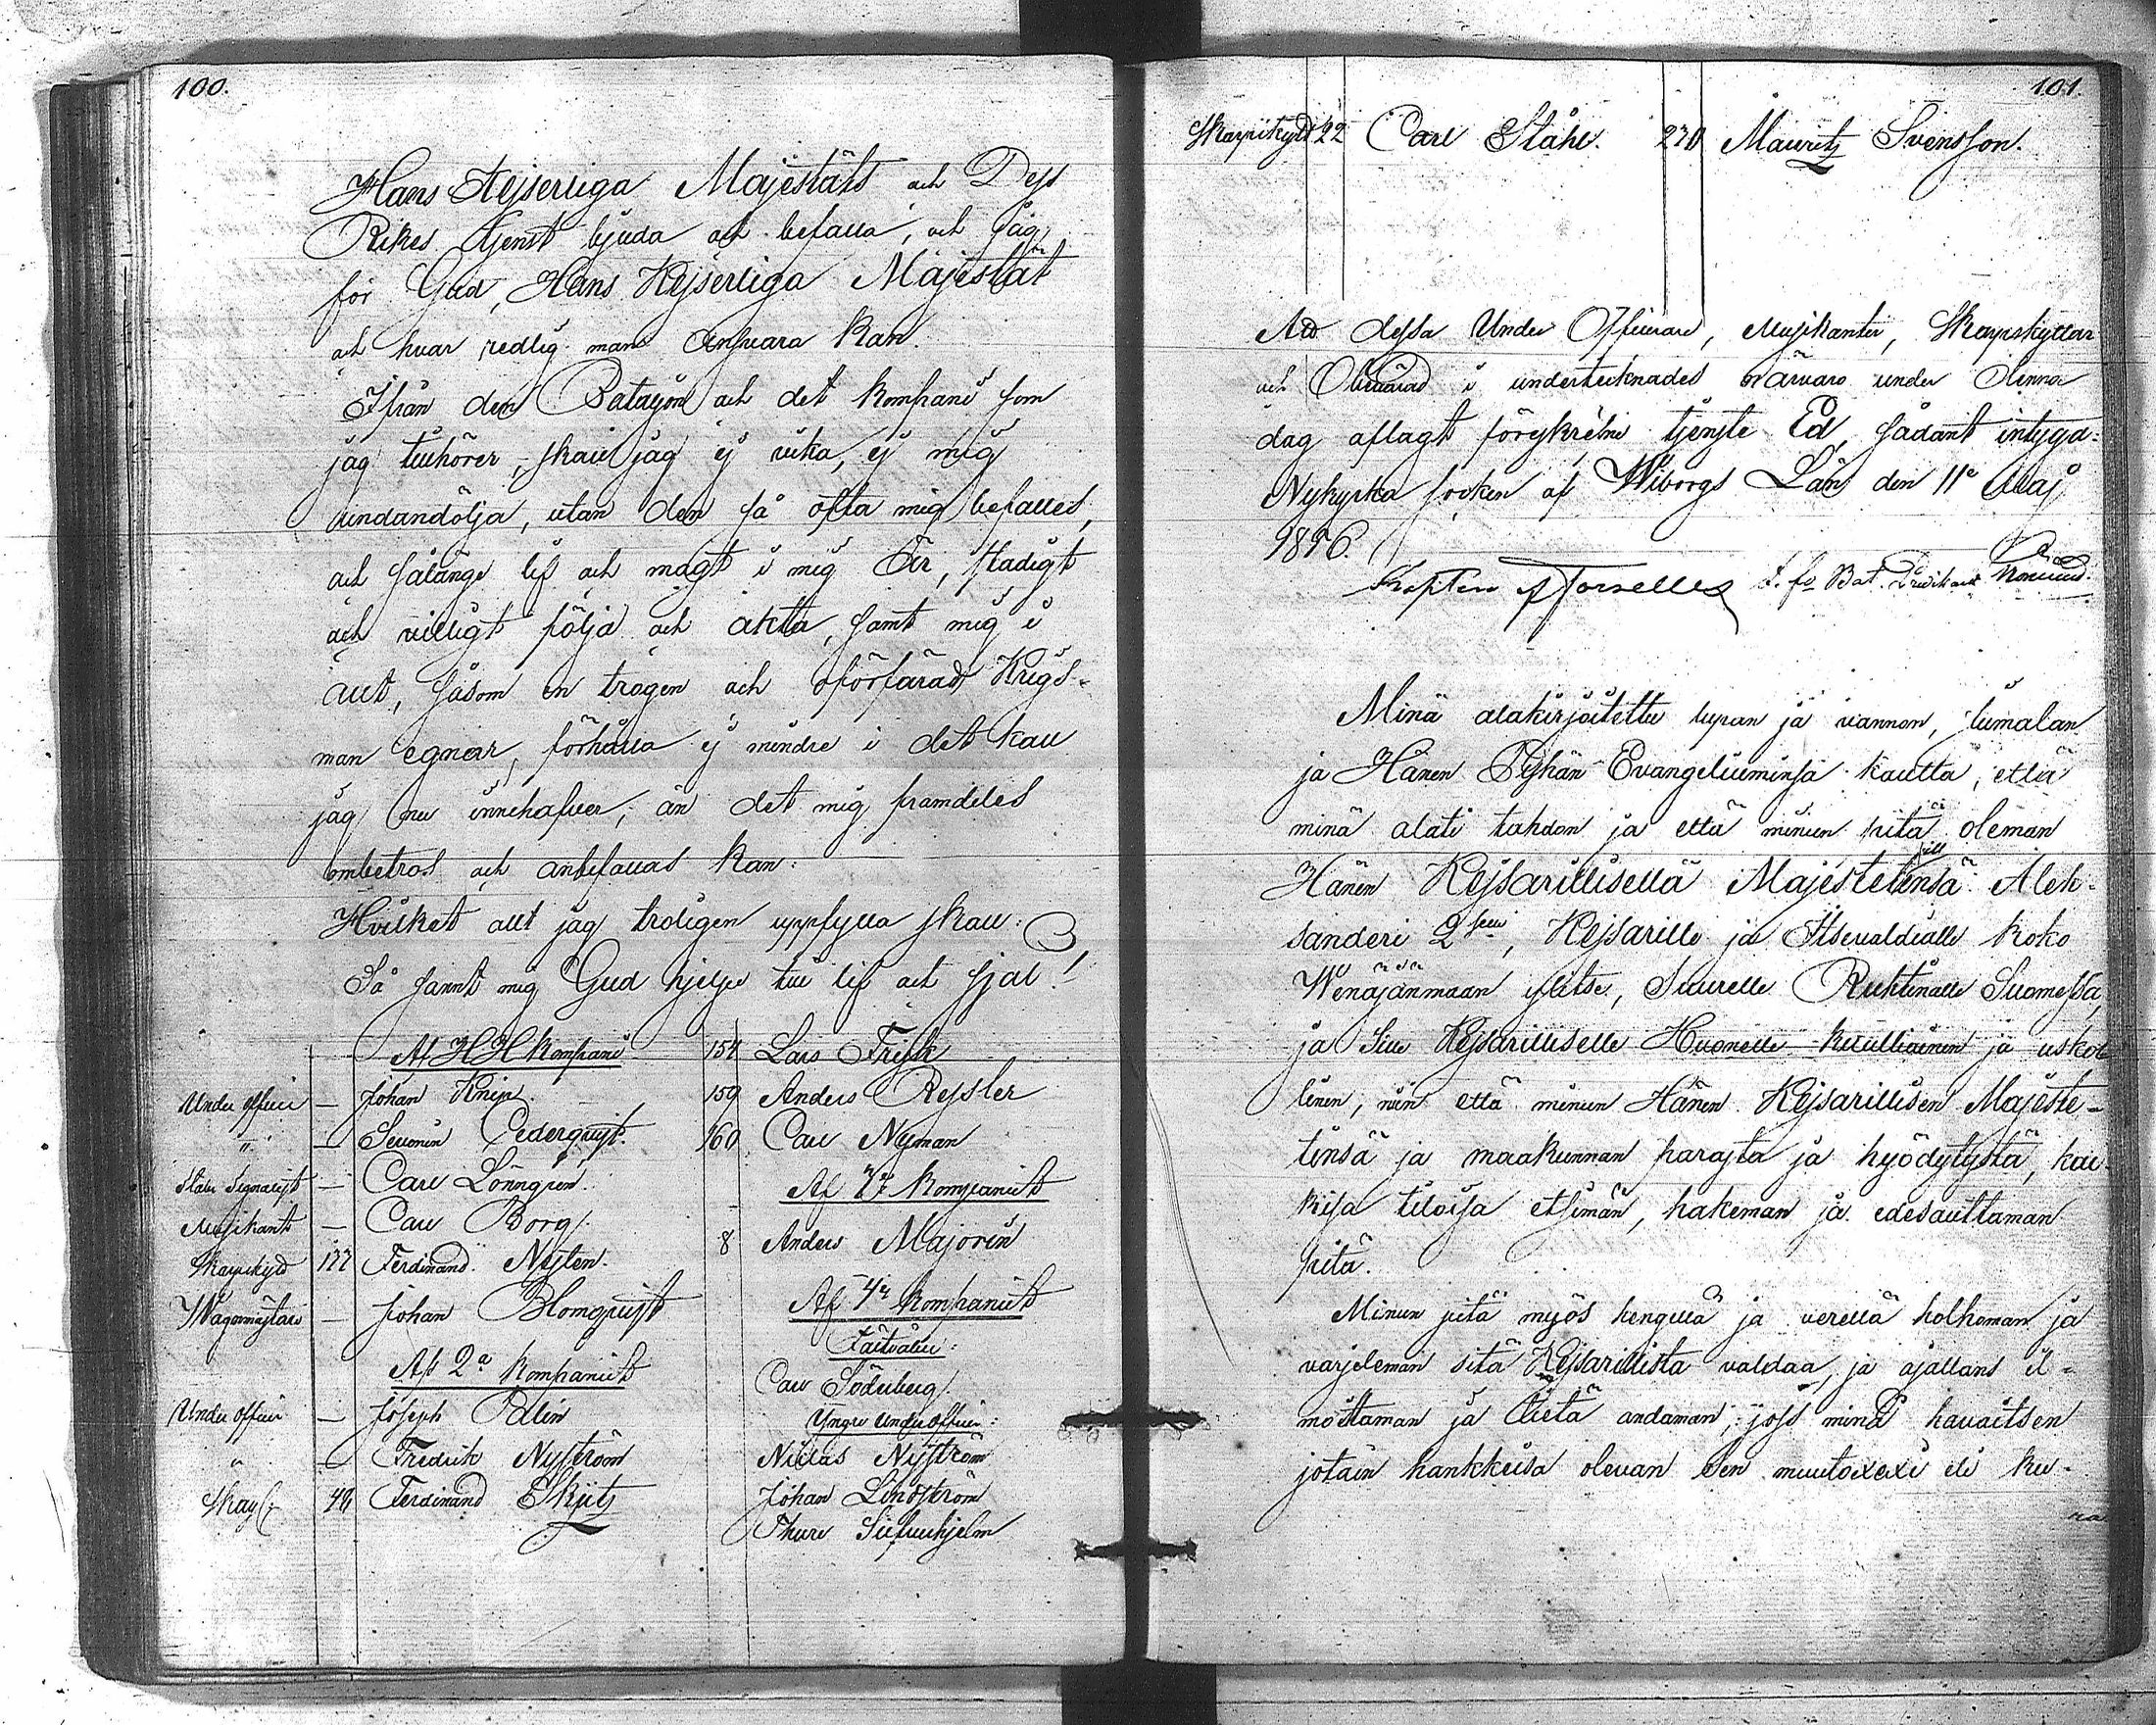 100.
Hans Kejserliga Majestäts och Dess
Rikes tjenst bjuda och befalla, och jag
för Gud, Hans Kejserliga Majestät
och hvar redlig man ansvara kan.
Ifrån den Bataljon och det kompani som
jag tillhörer, skall jag ej vika, ej mig
undandölja, utan den så ofta mig befalles,
och så länge lif och magt i mig är, stadigt
och villigt följa och akta, samt mig i
allt, såsom en trogen och oförfärad Krigs-
man egnar, förhålla ej mindre i det kall
jag nu innehafver, än det mig framdeles
ombetros och anbefallas kan:
Hvilket allt jag troligen uppfylla skall:
Så sannt mig Gud hjelpe till lif och själ!
Af H H kompani
Under officer — Johan Knip.
" — Cederqvist.
Stabs Signalist — Carl Lönngren.
Musikant — Carl Borg.
Skarpskytt 177 Ferdinand Nysten.
Wagnmästare — Johan Blomqvist
Af 2a kompaniet
Under officer — Joseph Palin
" — Fredrik Nyström
Skarps. 49 Ferdinand Skytz
154 Lars Frisk
159 Anders Ressler
160 Carl Nyman
Af kompaniet
8 Anders Majorin
Af 4e kompaniet
Fältväbel:
Carl Söderberg.
Yngre underofficer:
Niclas Nyström
Johan Lindström
Thure Silfverhjelm
101.
Skarpskytt 22 Carl Ståhl. 270 Mauritz Svensson.
Att dessa Under Officerare, Musikanter, Skarpskyttar
och i undertecknades närvaro under denna
dag aflagt föreskrefne tjenste Ed, sådant intyga:
Nykyrka socken af Wiborgs Län den 11e Maj
1856.
Kapten t. f. Bat. Predikant
Minä alakirjoitettu lupan ja vannon, Jumalan
ja Hänen Pyhän Evangeliuminsa kautta, että
minä alati tahdon ja että minun pitää oleman
Hänen Kejsarillisellä Majestetillensä Alek-
sanderi 2sselle, Kejsarille ja Itsevaldialle koko
Wenäjänmaan ylitse, Suurelle Ruhtinalle Suomessa,
ja Sille Kejsarilliselle Huonelle kuulliainen ja uskol
linen, niin että minun Hänen Kejsarillisen Majeste-
tinsä ja maakunnan parasta ja hyödytystä, kai-
kisa tiloisa etsimän, hakeman ja edesauttaman
pitä.
Minun pitä myös hengellä ja verellä holhoman ja
varjeleman sitä Kejsarillista valdaa, ja ajallans il-
moittaman ja tietä andaman, joss minä havaitsen
jotain hankkeisa olevan sen muutoxexi eli ku-
na